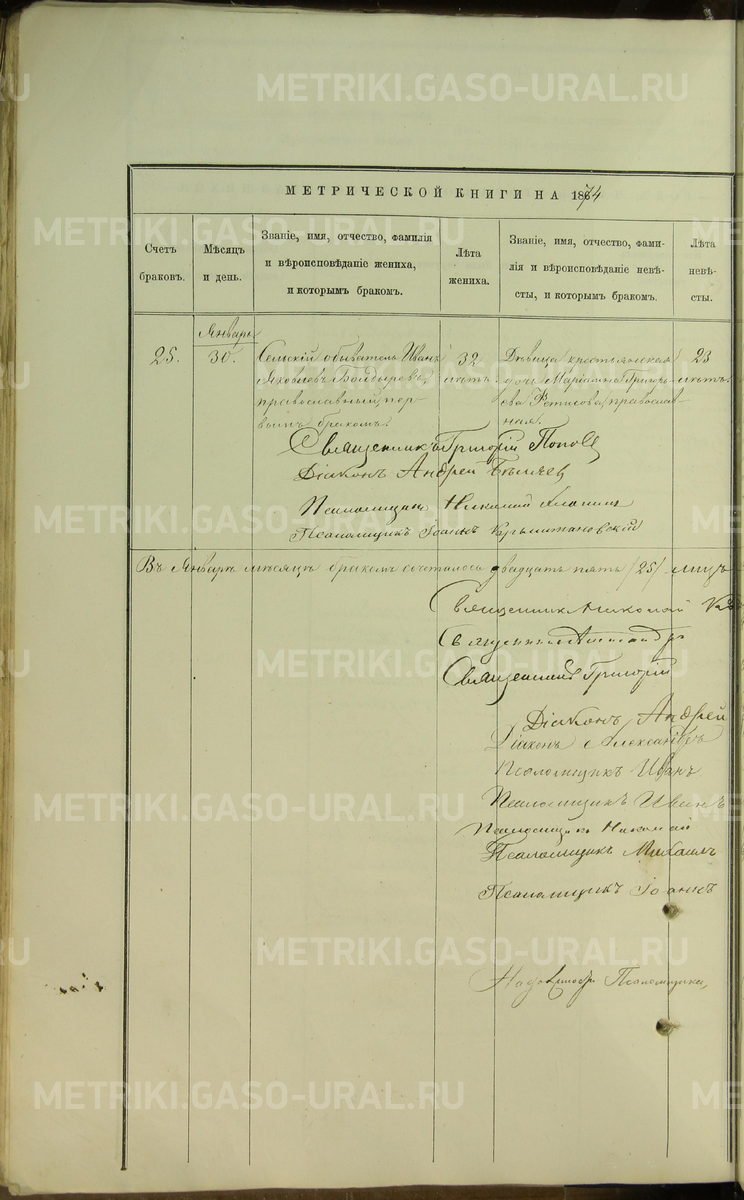 МЕТРИЧЕСКОЙ КНИГИ НА 1874
Счетъ браковъ.
Мѣсяцъ и день.
Званіе, имя, отчество, фамилія
и вѣроисповѣданіе жениха,
и которымъ бракомъ.
Лѣта
жениха.
Званіе, имя, отчество, фами-
лія и вѣроисповѣданіе невѣ-
сты, и которымъ бракомъ.
Лѣта
невѣ-
сты.
Январь
25.
30.
Сельскій обыватель Иванъ
Яковлевъ Болдыревъ,
православный, пер-
вымъ бракомъ.
32
лѣтъ.
Дѣвица крестьянская
дочь Маріамна Григорь-
ева Фетисова, православ-
ная.
23
лѣтъ.
Священникъ Григорій Поповъ
Діаконъ Андрей Бѣляевъ
Псаломщикъ Николай
Псаломщикъ Іоаннъ Кржижановскій
Въ Январѣ мѣсяцѣ бракомъ сочеталось двадцать пять /25/ лицъ
Священникъ Николай
Священникъ
Священникъ Григорій
Діаконъ Андрей
Діаконъ Александръ
Псаломщикъ Иванъ
Псаломщикъ Иванъ
Псаломщикъ Николай
Псаломщикъ Михаилъ
Псаломщикъ Іоаннъ
Псаломщика
METRIKI.GASO-URAL.RU